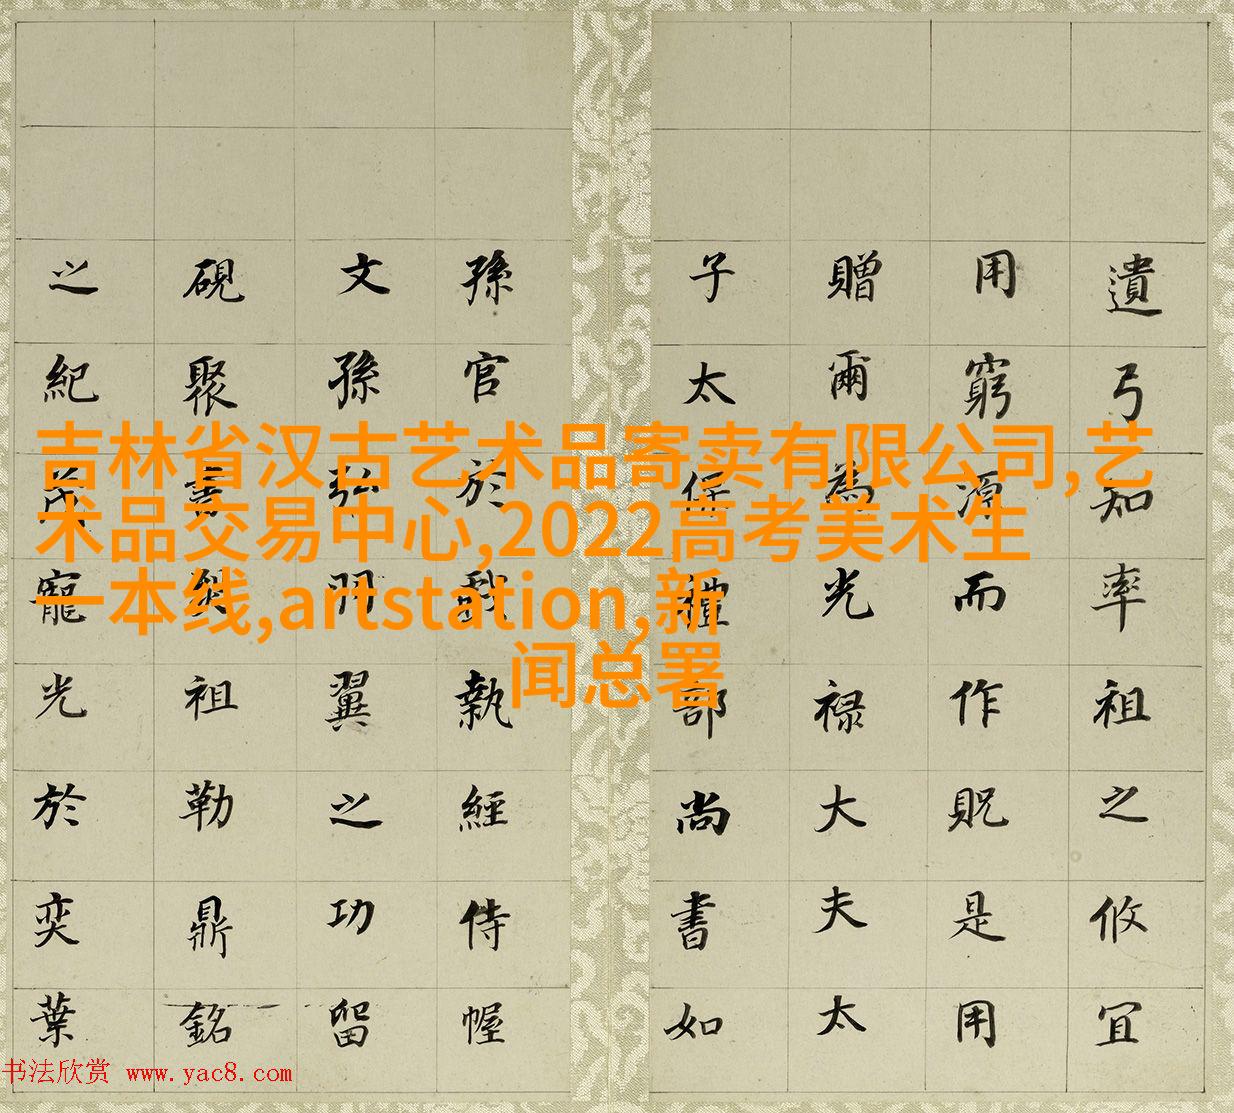 遺弓知率祖之攸宜
用窮源而作貺是用
贈爾為光禄大夫太
子太保禮部尚書如
孫官於執經侍幄
文孫弘翼之功留
硯聚書祖勒鼎銘
之紀茂寵光於奕葉
吉林省汉古艺术品寄卖有限公司,艺
术品交易中心,2022高考美术生
一本线,artstation,新
闻总署
书法欣赏 www.yac8.com